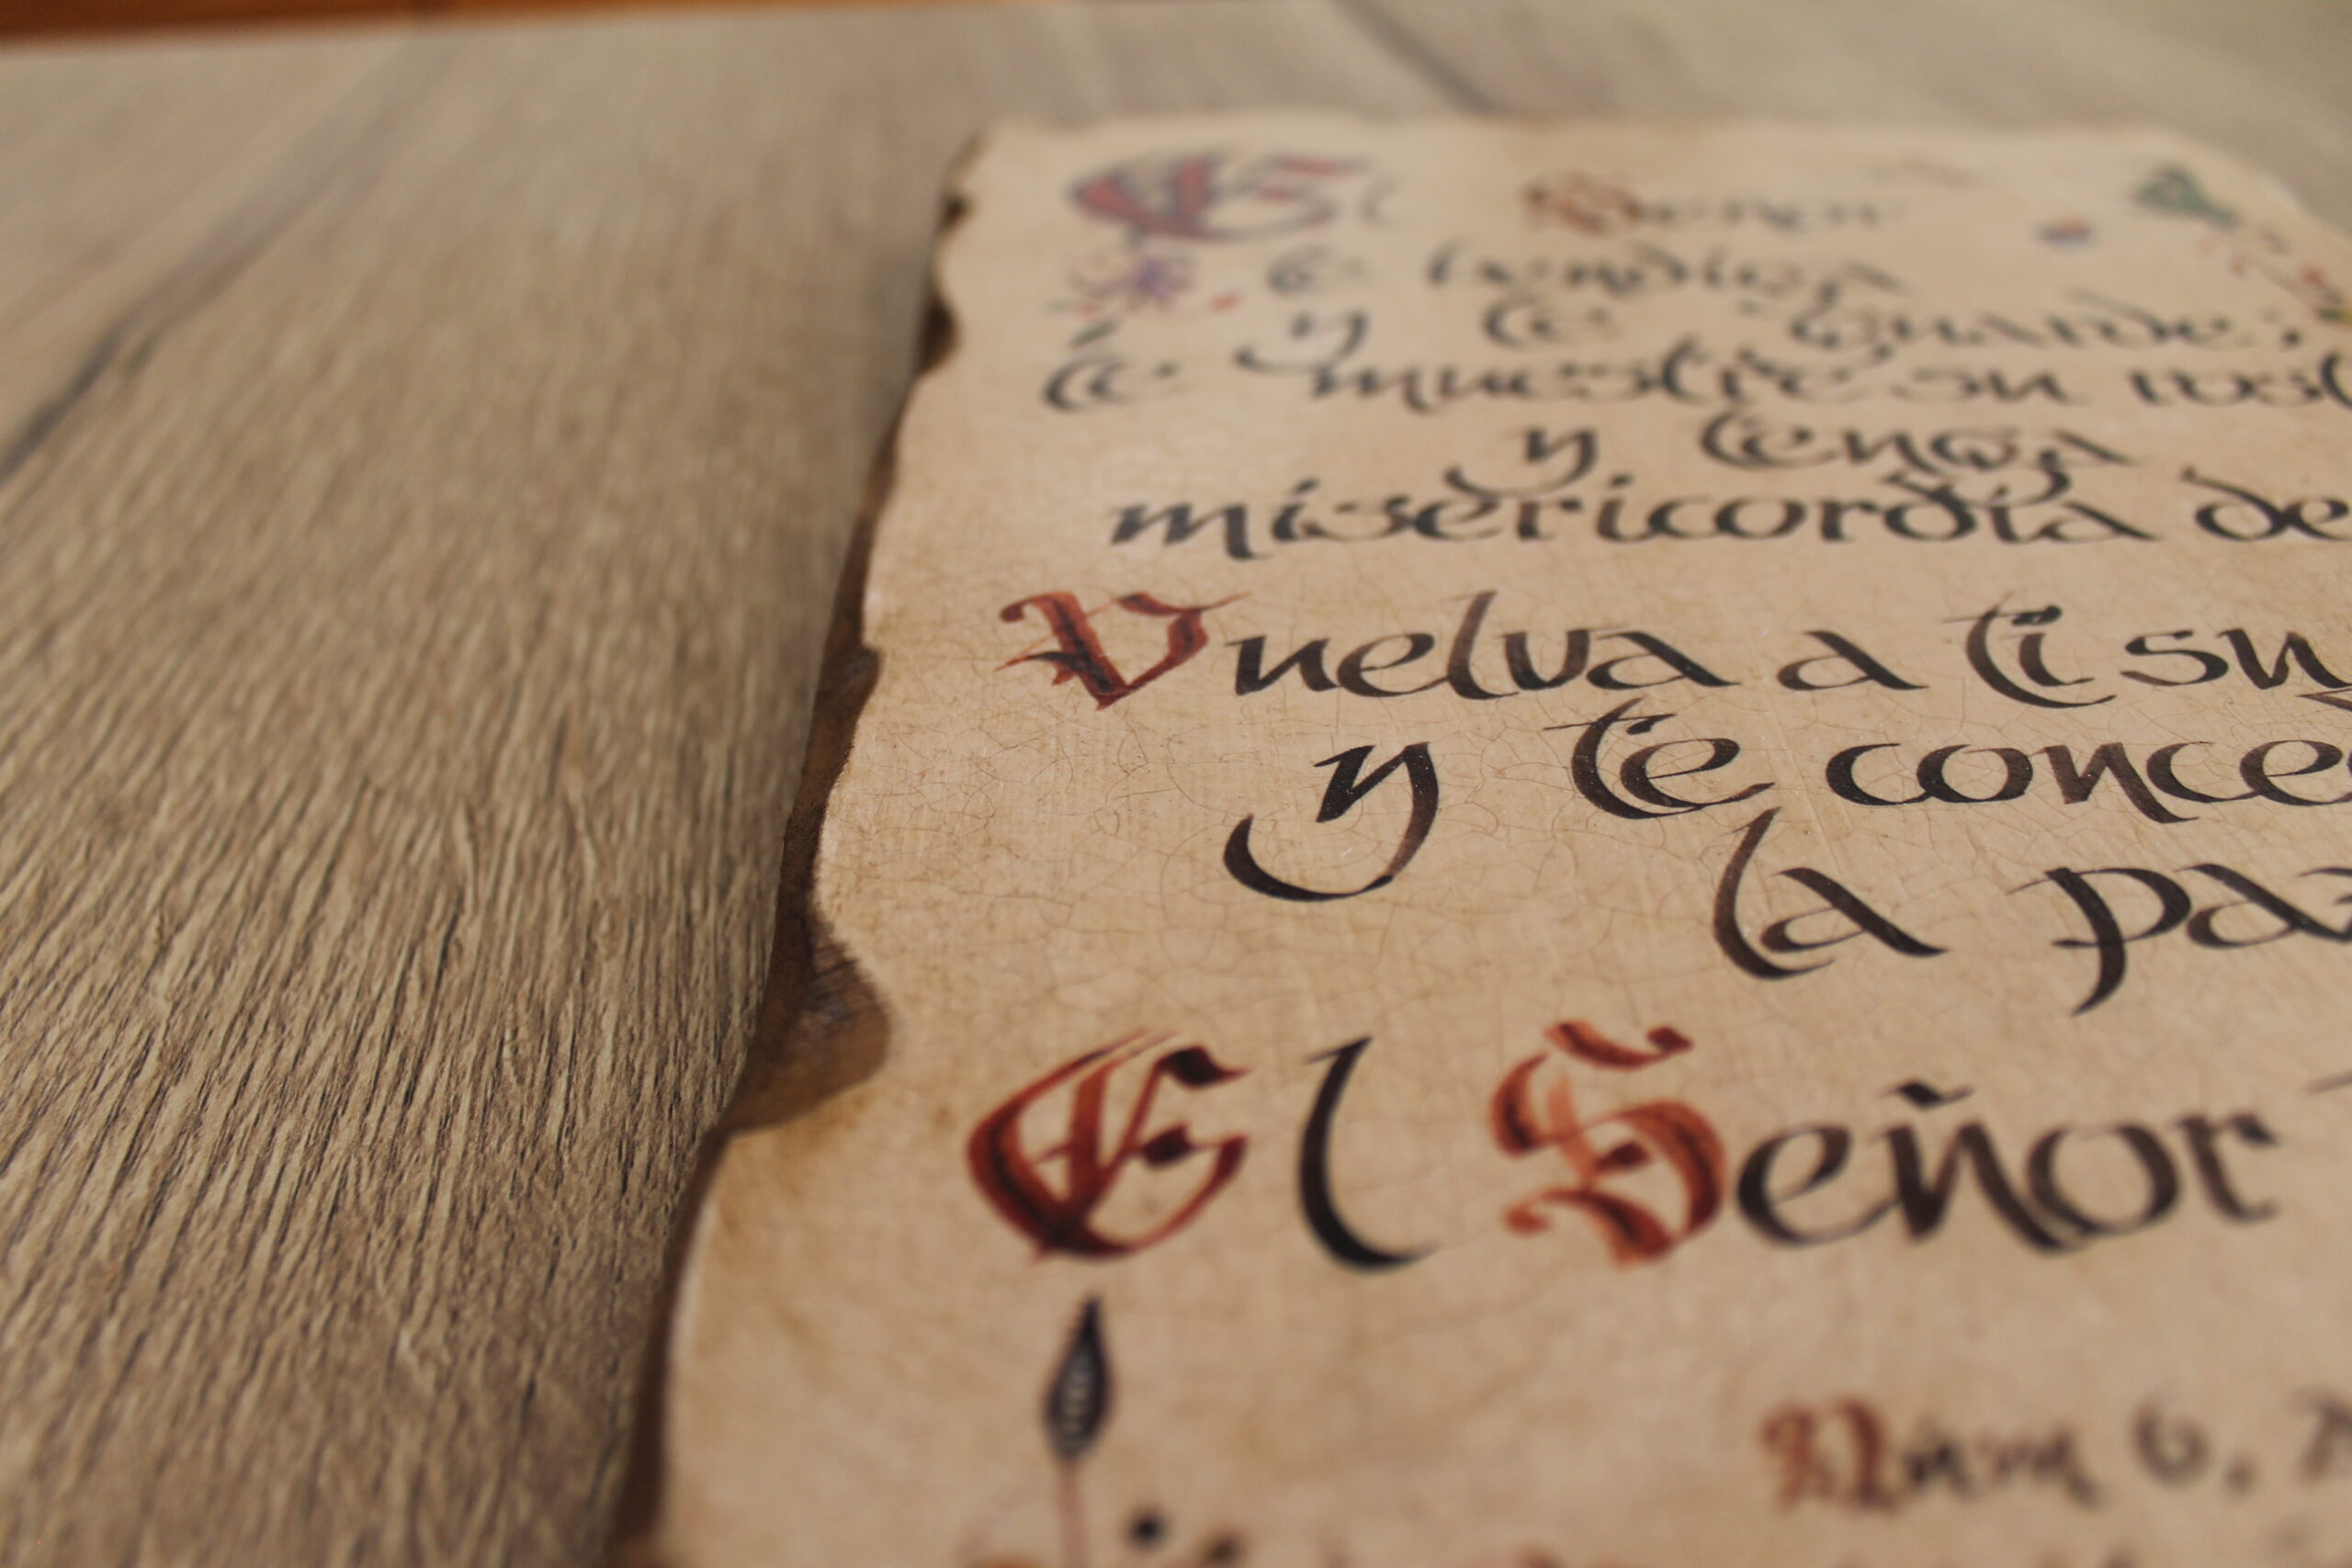 El Señor
te bendiga
y te guarde;
te muestre su rost
y tenga
misericordia de
Vuelva a ti su
y te conce
la paz
El Señor
Núm 6, 2